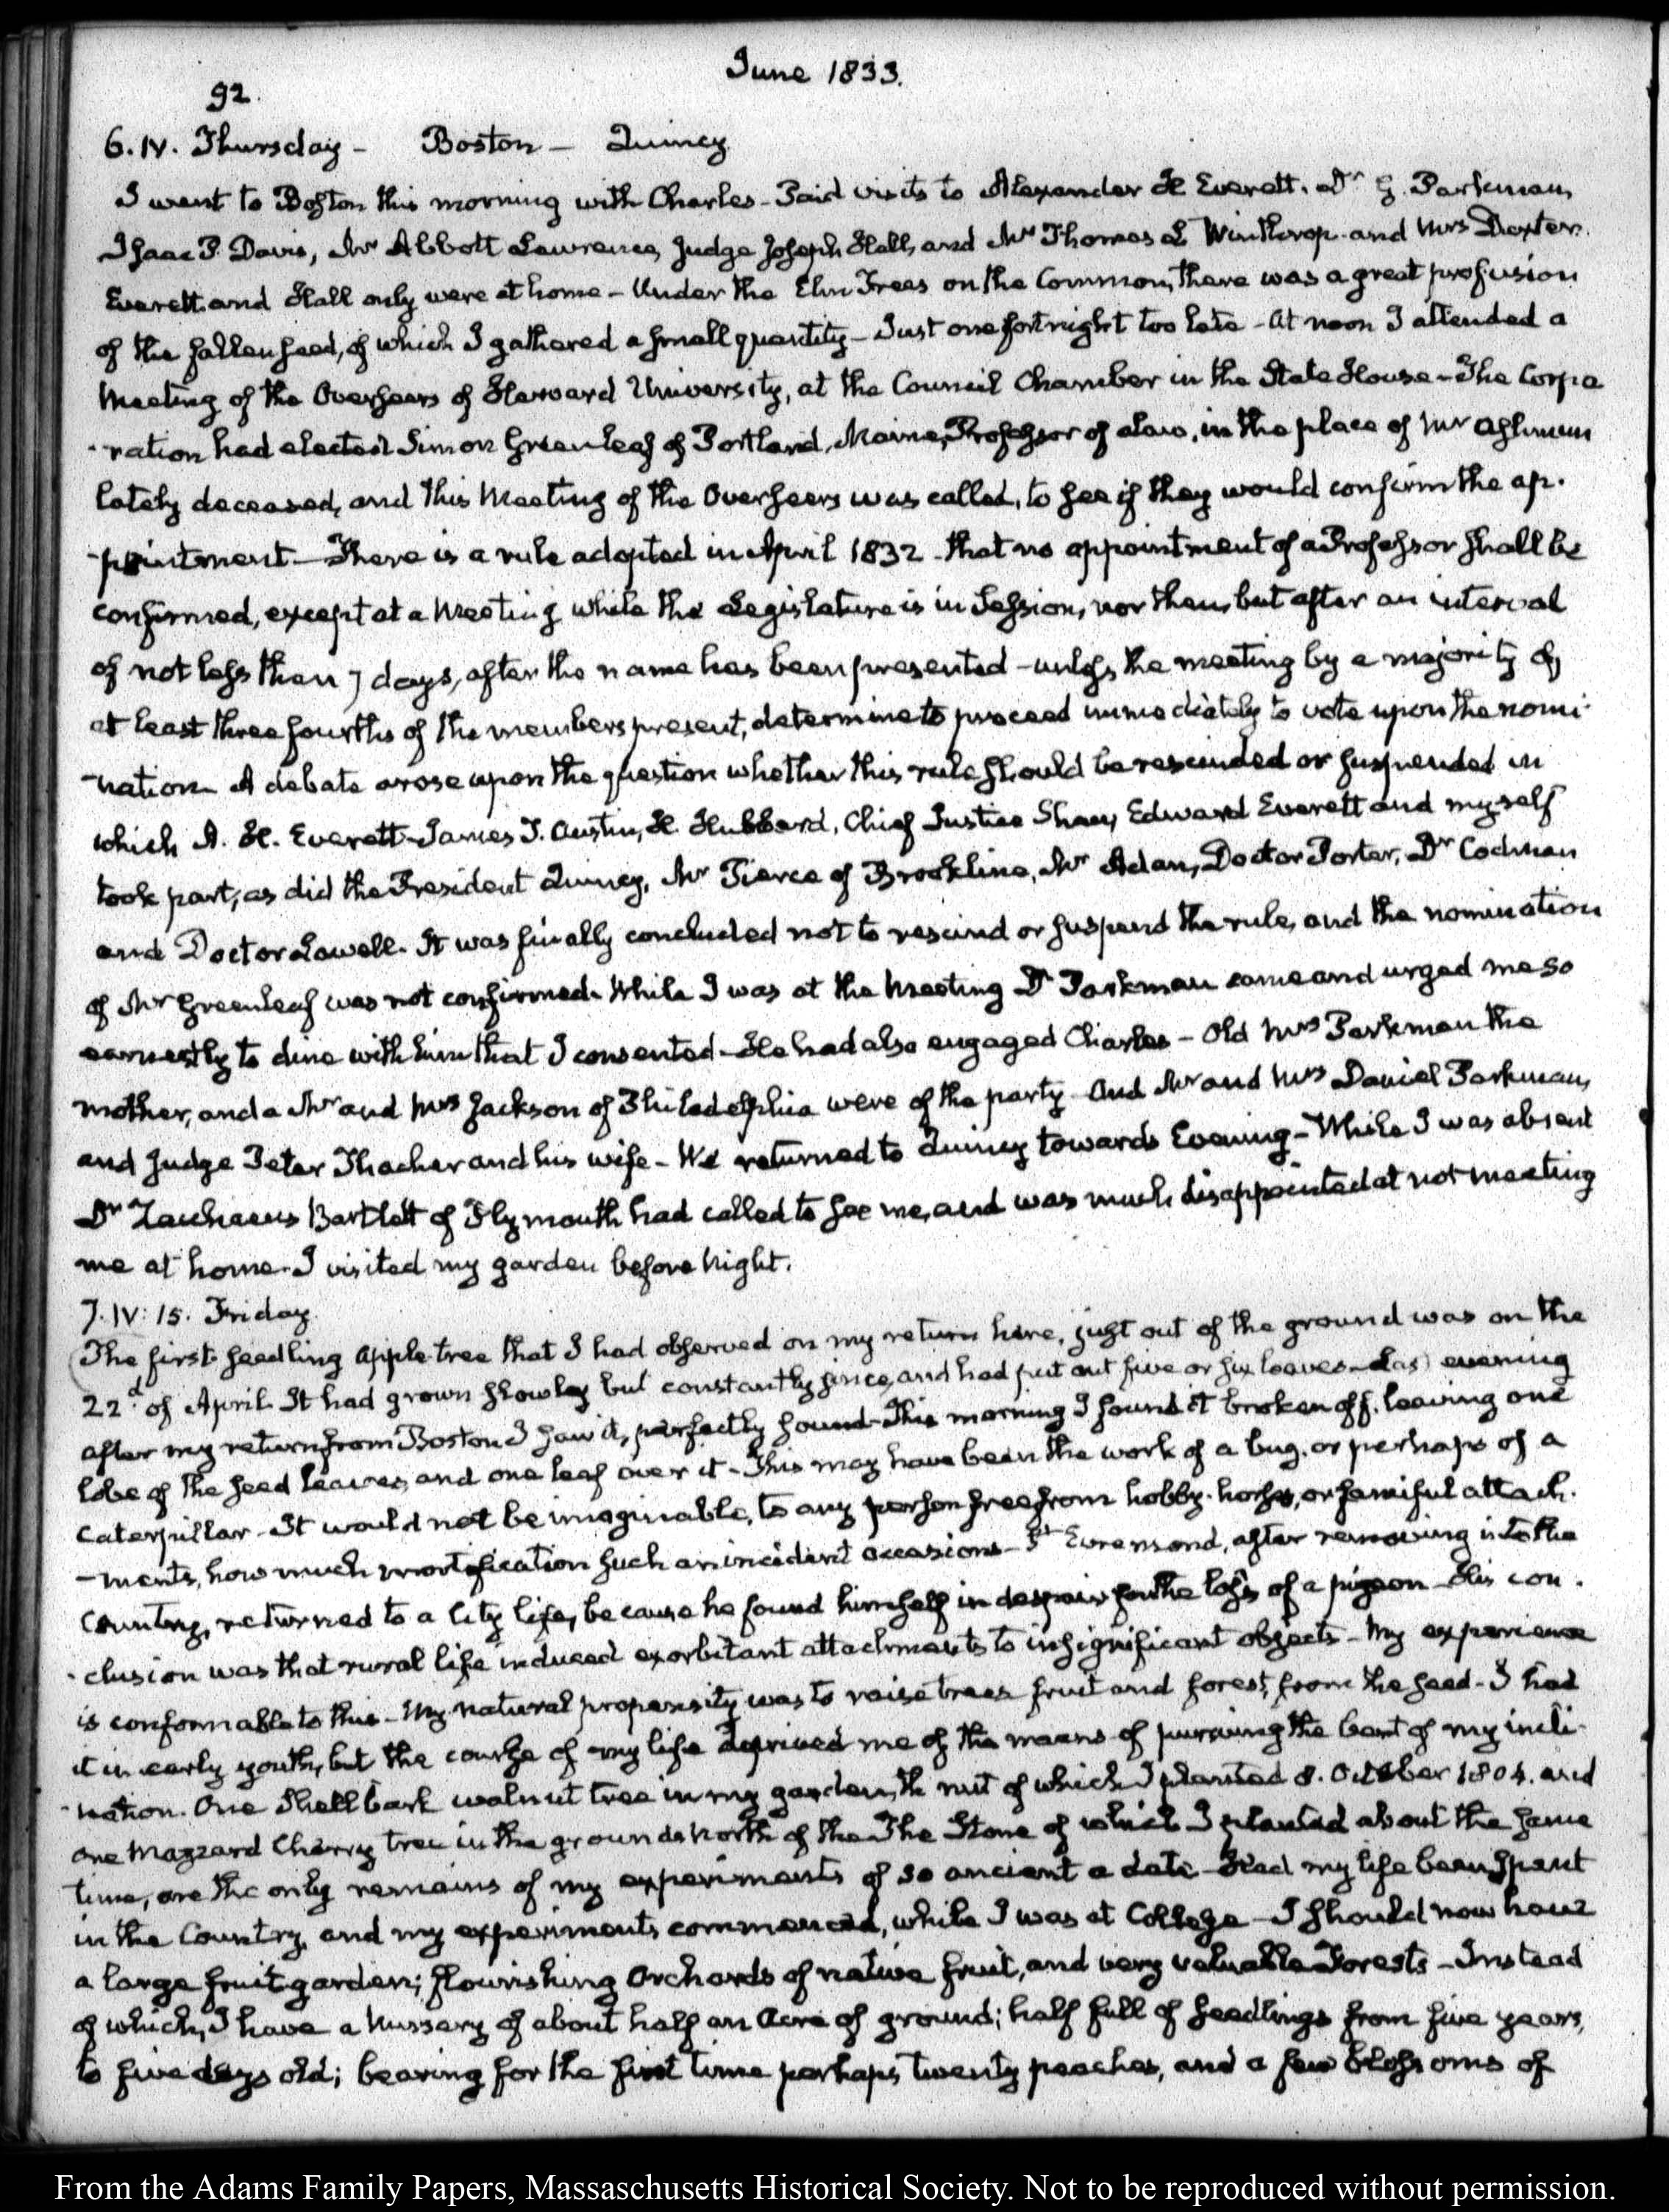 June 1833.
92.
6. IV. Thursday - Boston - Quincy
I went to Boston this morning with Charles - Paid visits to Alexander H Everett. Dr G. Parkman,
Isaac P. Davis, Mr Abbott Lawrence, Judge Joseph Hall, and Mr Thomas L Winthrop. and Mrs Dexter.
Everett and Hall only were at home - Under the Elm Trees on the Common, there was a great profusion
of the fallen seed, of which I gathered a small quantity - Just one fortnight too late - At noon I attended a
Meeting of the Overseers of Harvard University, at the Council Chamber in the State House - The Corpo
-ration had elected Simon Greenleaf of Portland, Maine, Professor of Law, in the place of Mr Ashmun
lately deceased, and this Meeting of the Overseers was called, to see if they would confirm the ap-
-pointment - There is a rule adopted in April 1832 - that no appointment of a Professor shall be
confirmed, except at a Meeting while the Legislature is in Session, nor then, but after an interval
of not less than 7 days, after the name has been presented - unless the meeting by a majority of
at least three fourths of the members present, determine to proceed immediately to vote upon the nomi-
-nation - A debate arose upon the question whether this rule should be rescinded or suspended in
which A. H. Everett - James T. Austin, H. Hubbard, Chief Justice Shaw, Edward Everett and myself
took part, as did the President Quincy, Mr Pierce of Brookline, Mr Adan, Doctor Porter, Dr Codman
and Doctor Lowell. It was finally concluded not to rescind or suspend the rule, and the nomination
of Mr Greenleaf was not confirmed. While I was at the Meeting Dr Parkman came and urged me so
earnestly to dine with him that I consented - He had also engaged Charles - Old Mrs Parkman the
mother, and a Mr and Mrs Jackson of Philadelphia were of the party - And Mr and Mrs Daniel Parkman,
and Judge Peter Thacher and his wife - We returned to Quincy towards Evening - While I was absent
Dr Zaccheus Bartlett of Plymouth had called to see me, and was much disappointed at not meeting
me at home. I visited my garden before Night.
7. IV: 15. Friday
The first seedling Apple tree that I had observed on my return here, just out of the ground was on the
22d of April. It had grown slowly but constantly since, and had put out five or six leaves - Last evening
after my return from Boston I saw it, perfectly sound - This morning I found it broken off, leaving one
lobe of the seed leaves, and one leaf over it - This may have been the work of a bug, or perhaps of a
Caterpillar - It would not be imaginable, to any person free from hobby-horse, or fanciful attach-
-ments, how much mortification such an incident occasions - St Evremond, after removing into the
Country, returned to a City life, because he found himself in despair for the loss of a pigeon - His con-
-clusion was that rural life induced exorbitant attachments to insignificant objects - My experience
is conformable to this - My natural propensity was to raise trees fruit and forest, from the seed - I had
it in early youth, but the course of my life deprived me of the means of pursuing the bent of my incli-
-nation. One Shellbark walnut tree in my garden, the nut of which I planted 8. October 1804. and
one Mazzard Cherry tree in the grounds North of the The Stone of which I planted about the same
time, are the only remains of my experiments of so ancient a date - Had my life been spent
in the Country, and my experiments commenced, while I was at College - I should now have
a large fruit garden; flourishing Orchards of native fruit, and very valuable Forests - Instead
of which, I have a Nursery of about half an Acre of ground; half full of seedlings from five years,
to five days old; bearing for the first time perhaps twenty peaches, and a few blossoms of
From the Adams Family Papers, Massachusetts Historical Society. Not to be reproduced without permission.